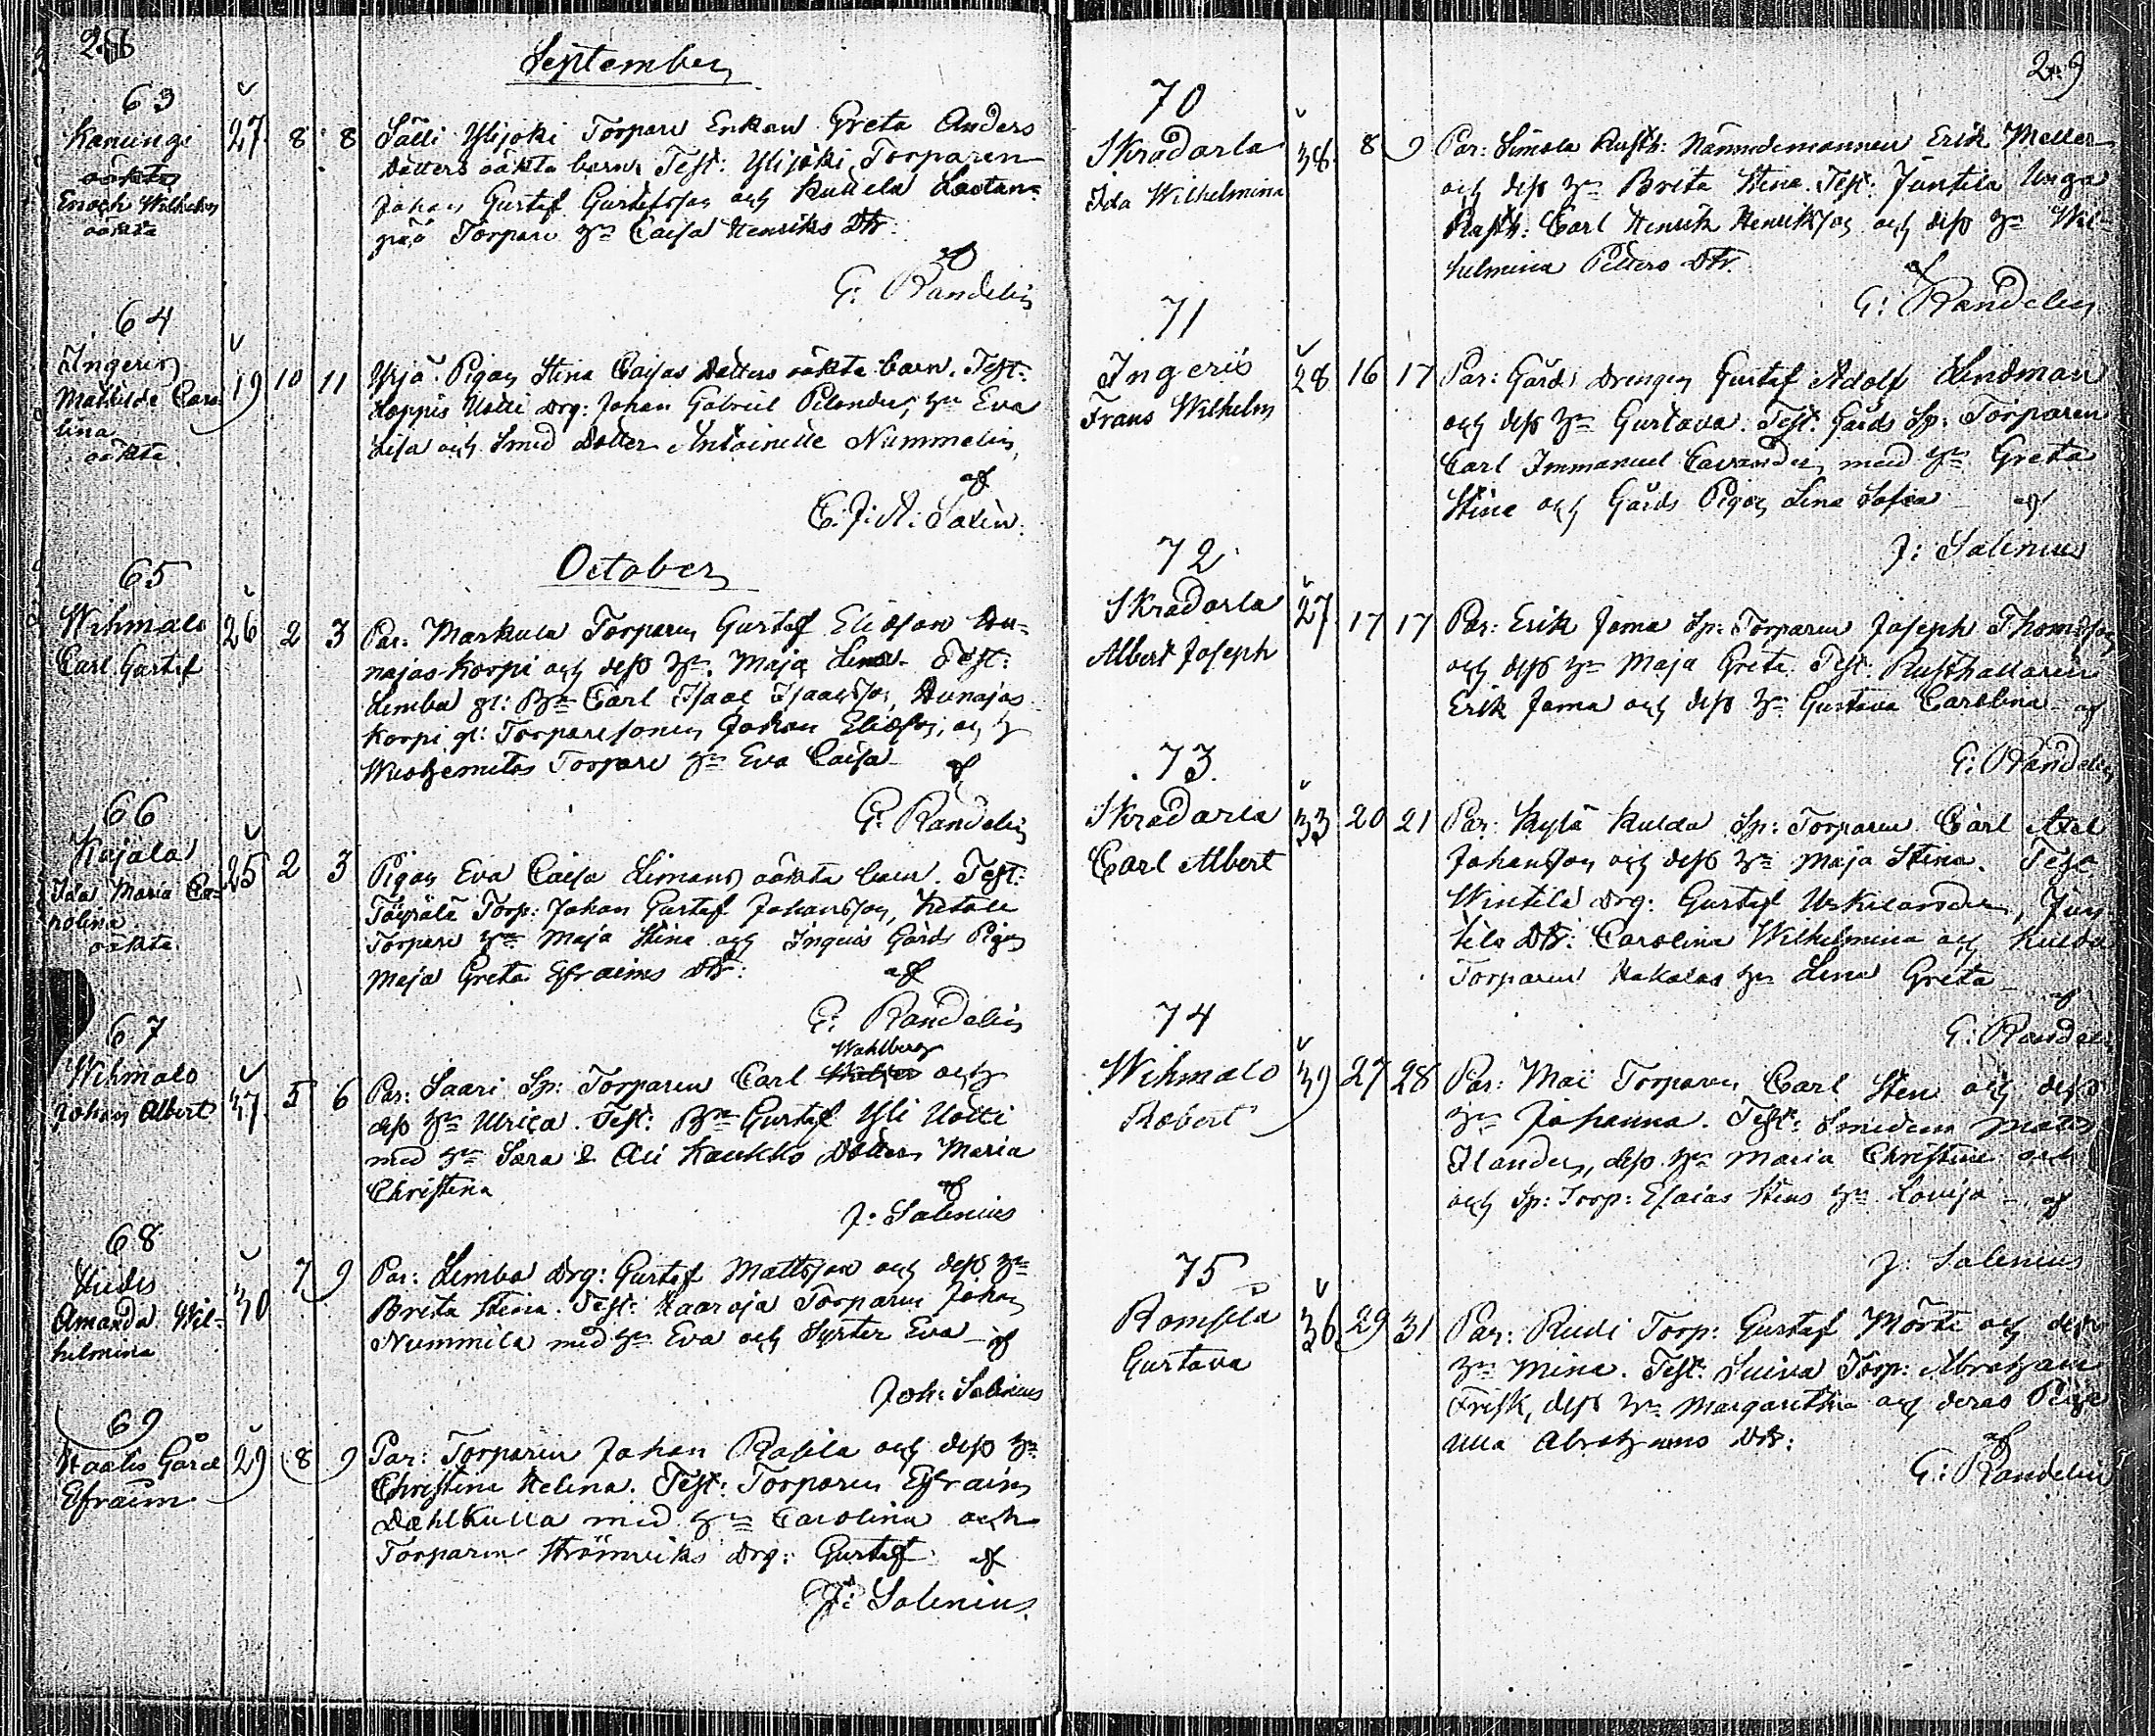 28
September
63
Kanungi
oäkta
Enoch Wilhelm
oäkta
27 8 8
Sälli Ylijoki Torpare Enkan Greta Anders
Dotters oäkta barn. Test: Ylijoki Torparen
Johan Gustaf Gustafsson och Kuddela
Torpare h:u Caisa Henriks Dtr:
af
G: Randelin
64
Ingeris
Mathilda Caro
lina
oäkta
19 10 11
Yrjä Pigan Stina Caisas Dotters oäkta barn. Test:
Hoppis Uotti drg: Johan Gabriel Pelander, h:u Eva
Lisa och Smed Dotter Antoinette Nummelin
af
C. J. A. Salin.
October
65
Wihmalo
Carl Gustaf
26 2 3
Par: Markula Torparen Gustaf Eliasson Hu-
najas-Korpi och dess h:u Maja Lena. Test:
Lemba gl: B:n Carl Isaac Isaacsson, Hunajas
Korpi gl: Torparesonen Johan Eliasson, och
Torpare h:u Eva Caisa
af
G: Randelin
66
Kajala
Ida Maria Ca-
rolina
oäkta
25 2 3
Pigan Eva Caisa Limans oäkta barn. Test:
Torp: Johan Gustaf Johansson,
Torpare h:u Maja Stina och Ingeris Gårds Pigan
Maja Greta Efraims Dtr: af
G: Randelin
67
Wihmalo
Johan Albert
37 5 6
Wahlberg
Par: Saari Sp: Torparen Carl och
dess h:u Ulrica. Test: B:n Gustaf Yli Uotti
med h:u Sara & Ali Kaukko Dotter Maria
Christina af
J: Salenius
68
Hudis
Amanda Wil-
helmina
30 7 9
Par: Lemba drg: Gustaf Mattsson och dess h:u
Brita Stina. Test: Haaroja Torparen Johan
Nummila med h:u Eva och Syster Eva af
Joh: Salenius
69
Haalis Gård
Efraim
29 8 9
Par: Torparen Johan Rasila och dess h:u
Christina Helena. Test: Torparen Efraim
Dahlkulla med h:u Carolina och
Torparen Strömviks drg: Gustaf af
J: Salenius.
29
70
Skradarla
Ida Wilhelmina
38 8 9
Par: Simola Rusth: Nämndemannen Erik Meller
och dess h:u Brita Stina. Test: Juntila Unga
Rusth: Carl Henrik Henriksson och dess h:u Wil-
helmina Petters Dtr.
af
G: Randelin
71
Ingeris
Frans Wilhelm
28 16 17
Par: Gårds Drengen Gustaf Adolf Lindman
och dess h:u Gustava. Test: Gårds Sp: Torparen
Carl Immanuel Cavander, med h:u Greta
Stina och Gårds Pigan Lena Sofia af
J: Salenius
72
Skradarla
Albert Joseph
27 17 17
Par: Erik Jama Sp: Torparen Joseph Thomasson
och dess h:u Maja Greta. Test: Rusthållaren
Erik Jama och dess h:u Gustava Carolina af
G: Randelin
73
Skradarla
Carl Albert
33 20 21
Par: Kylä Kulda Sp: Torparen Carl Axel
Johansson och dess h:u Maja Stina. Test
Wintila drg: Gustaf, Jun-
tila Dtr: Carolina Wilhelmina och Kulda
Torparen Hakalas h:u Lena Greta
af
G: Randelin
74
Wihmalo
Robert
39 27 28
Par: Mai Torparen Carl Sten och dess
h:u Johanna. Test: Smeden Matts
Flander, dess h:u Maria Christina och
och Sp: Torp: Esaias Stens h:u Lovisa af
J: Salenius
75
Romsila
Gustava
36 29 31
Par: Rudi Torp: Gustaf Mörte och dess
h:u Mina. Test: Torp: Abraham
Frisk, dess h:u Margaretha och deras Piga
Ulla Abrahams Dtr:
af
G: Randelin